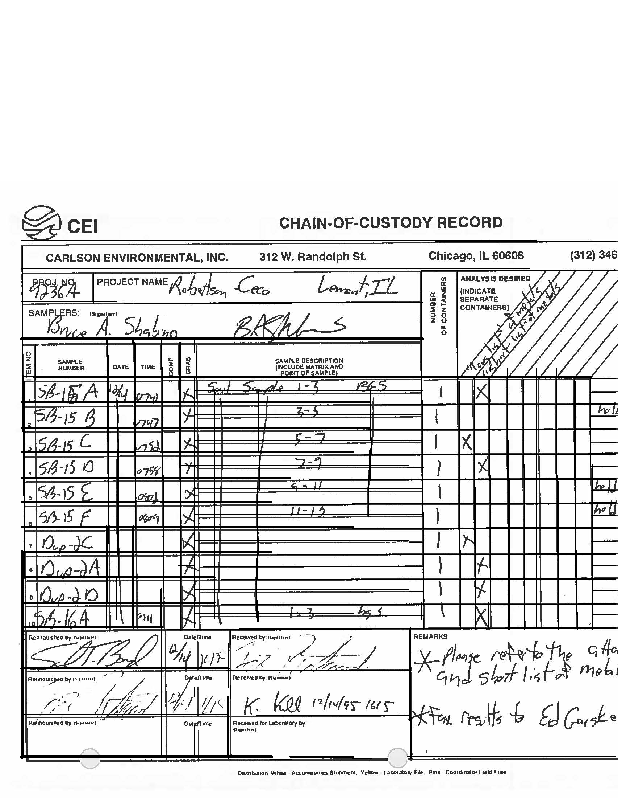 CEI
CHAIN-OF-CUSTODY RECORD
CARLSON ENVIRONMENTAL, INC. 312 W. Randolph St. Chicago, IL 60606 (312) 346
PROJ. NO. PROJECT NAME Robertson Ceco Lemont, IL
9236A
SAMPLERS: (Signature)
Bruce A. Shabino
NUMBER OF CONTAINERS
ANALYSIS DESIRED
(INDICATE
SEPARATE
CONTAINERS)
long list of metals
short list of metals
ITEM NO. SAMPLE NUMBER DATE TIME COMP. GRAB SAMPLE DESCRIPTION (INCLUDE MATRIX AND POINT OF SAMPLE)
1 SB-15 A 12/14 X Soil Sample 1-3 BGS 1 X
2 SB-15 B 0747 X 3-5 1 hold
3 SB-15 C 0752 X 5-7 1 X
4 SB-15 D 0758 X 7-9 1 X
5 SB-15 E X 9-11 1 hold
6 SB-15 F X 11-13 1 hold
7 Dup-2C X 1 X
8 Dup-2A X 1 X
9 Dup-2D X 1 X
10 SB-16A X 1-3 bgs 1 X
Relinquished by (Signature) Date/Time Received by (Signature)
12/14
Relinquished by (Signature) Date/Time Received by (Signature)
K. Kill 12/14/95 1615
Relinquished by (Signature) Date/Time Received for Laboratory by (Signature)
REMARKS
* Please refer to the atta
and short list of metal
* Fax results to Ed Garske